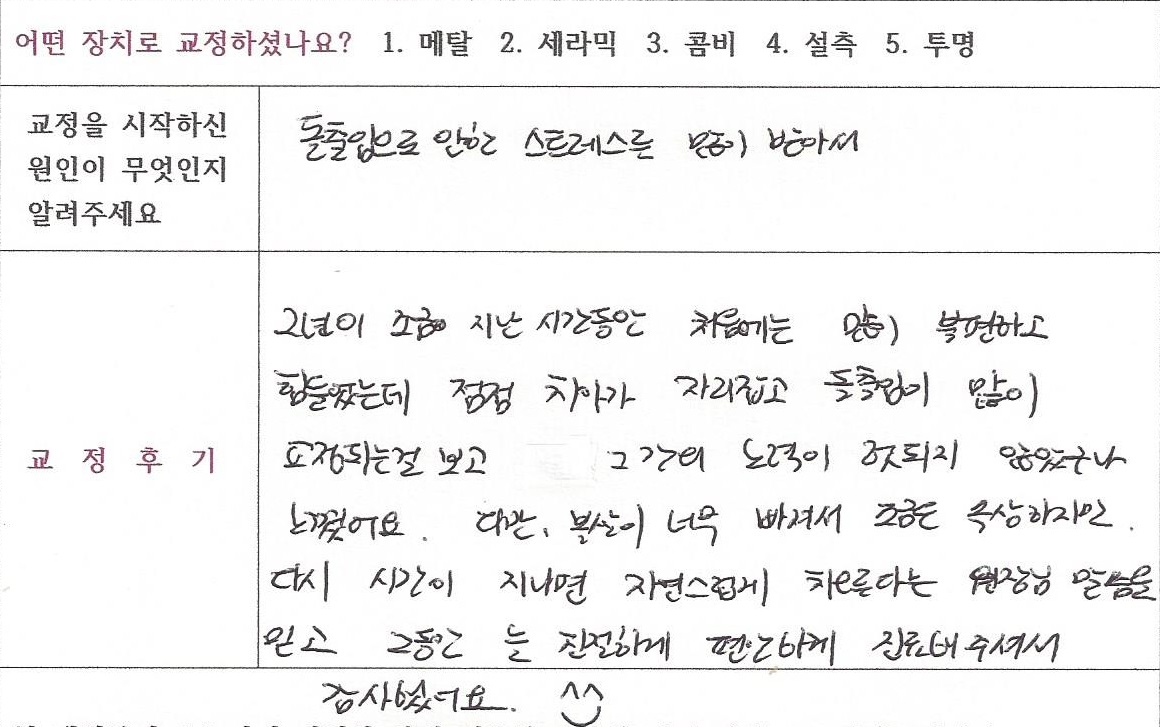 어떤 장치로 교정하셨나요? 1. 메탈 2. 세라믹 3. 콤비 4. 설측 5. 투명
교정을 시작하신
원인이 무엇인지
알려주세요
돌출입으로 인한 스트레스를 많이 받아서
교 정 후 기
2년이 조금 지난 시간동안 처음에는 많이 불편하고
힘들었는데 점점 치아가 자리잡고 돌출입이 많이
교정되는걸 보고 그간의 노력이 헛되지 않았구나
느꼈어요. 다만, 볼살이 너무 빠져서 조금은 속상하지만.
다시 시간이 지나면 자연스럽게 차오른다는 원장님 말씀을
믿고 그동안 늘 친절하게 편안하게 진료해주셔서
감사했어요. ^^